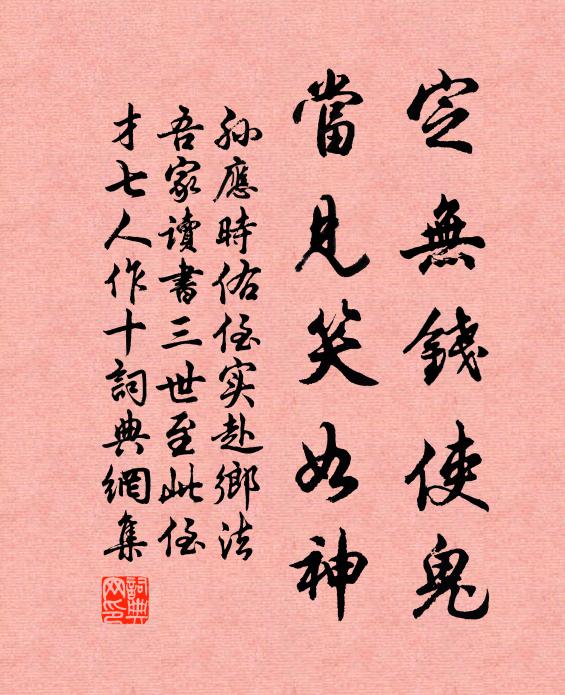 定無錢使鬼
當見笑如神
孙應時佑侄实赴鄉法
吾家讀書三世至此侄
才七人作十詞典網集
詞典網印